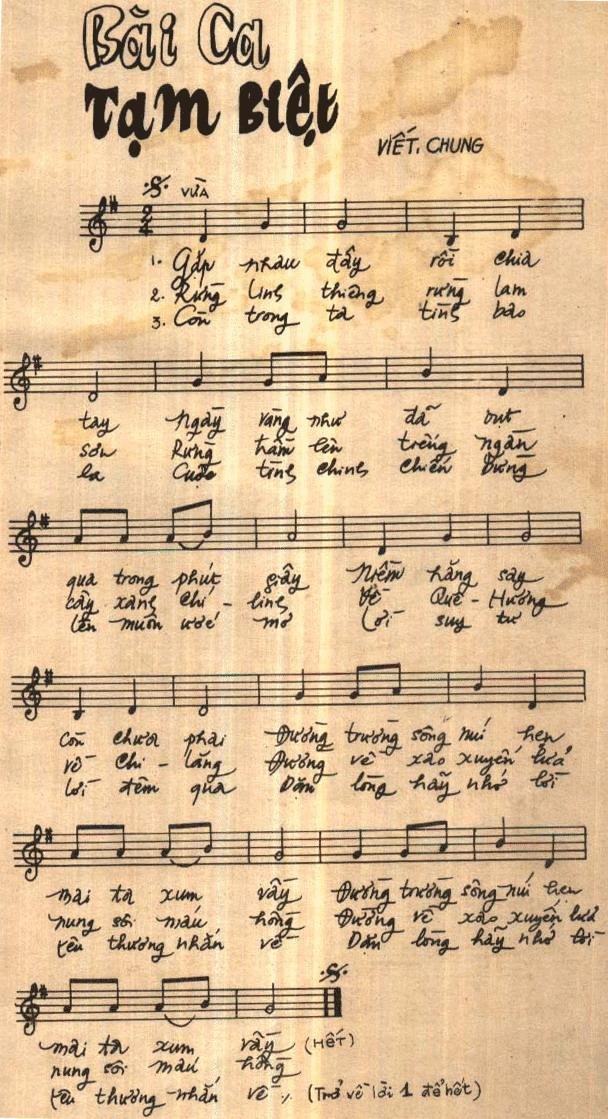 Bài Ca
Tạm Biệt
VIẾT, CHUNG
VỪA
2
4
1. Gặp nhau đây rồi chia
2. Rừng linh thiêng rừng lam
3. Còn trong ta tình bao
tay Ngày vàng như đã vụt
sơn Rừng hầm lên tiếng ngàn
la Cuộc tình chinh chiến Dừng
qua trong phút giây Niềm hăng say
cây xanh chí - linh Về Quê - Hương
lên muôn ước mơ Lời suy tư
còn chưa phai Đường trường sông núi hẹn
về Chi - lăng Đường về xao xuyến lửa
lời đêm qua Dặn lòng hãy nhớ lời
mai ta xum vầy Đường trường sông núi hẹn
nung sôi máu hồng Đường về xao xuyến lửa
yêu thương nhắn về Dặn lòng hãy nhớ lời
mai ta xum vầy (HẾT)
nung sôi máu hồng
yêu thương nhắn về (Trở về lời 1 để hết)